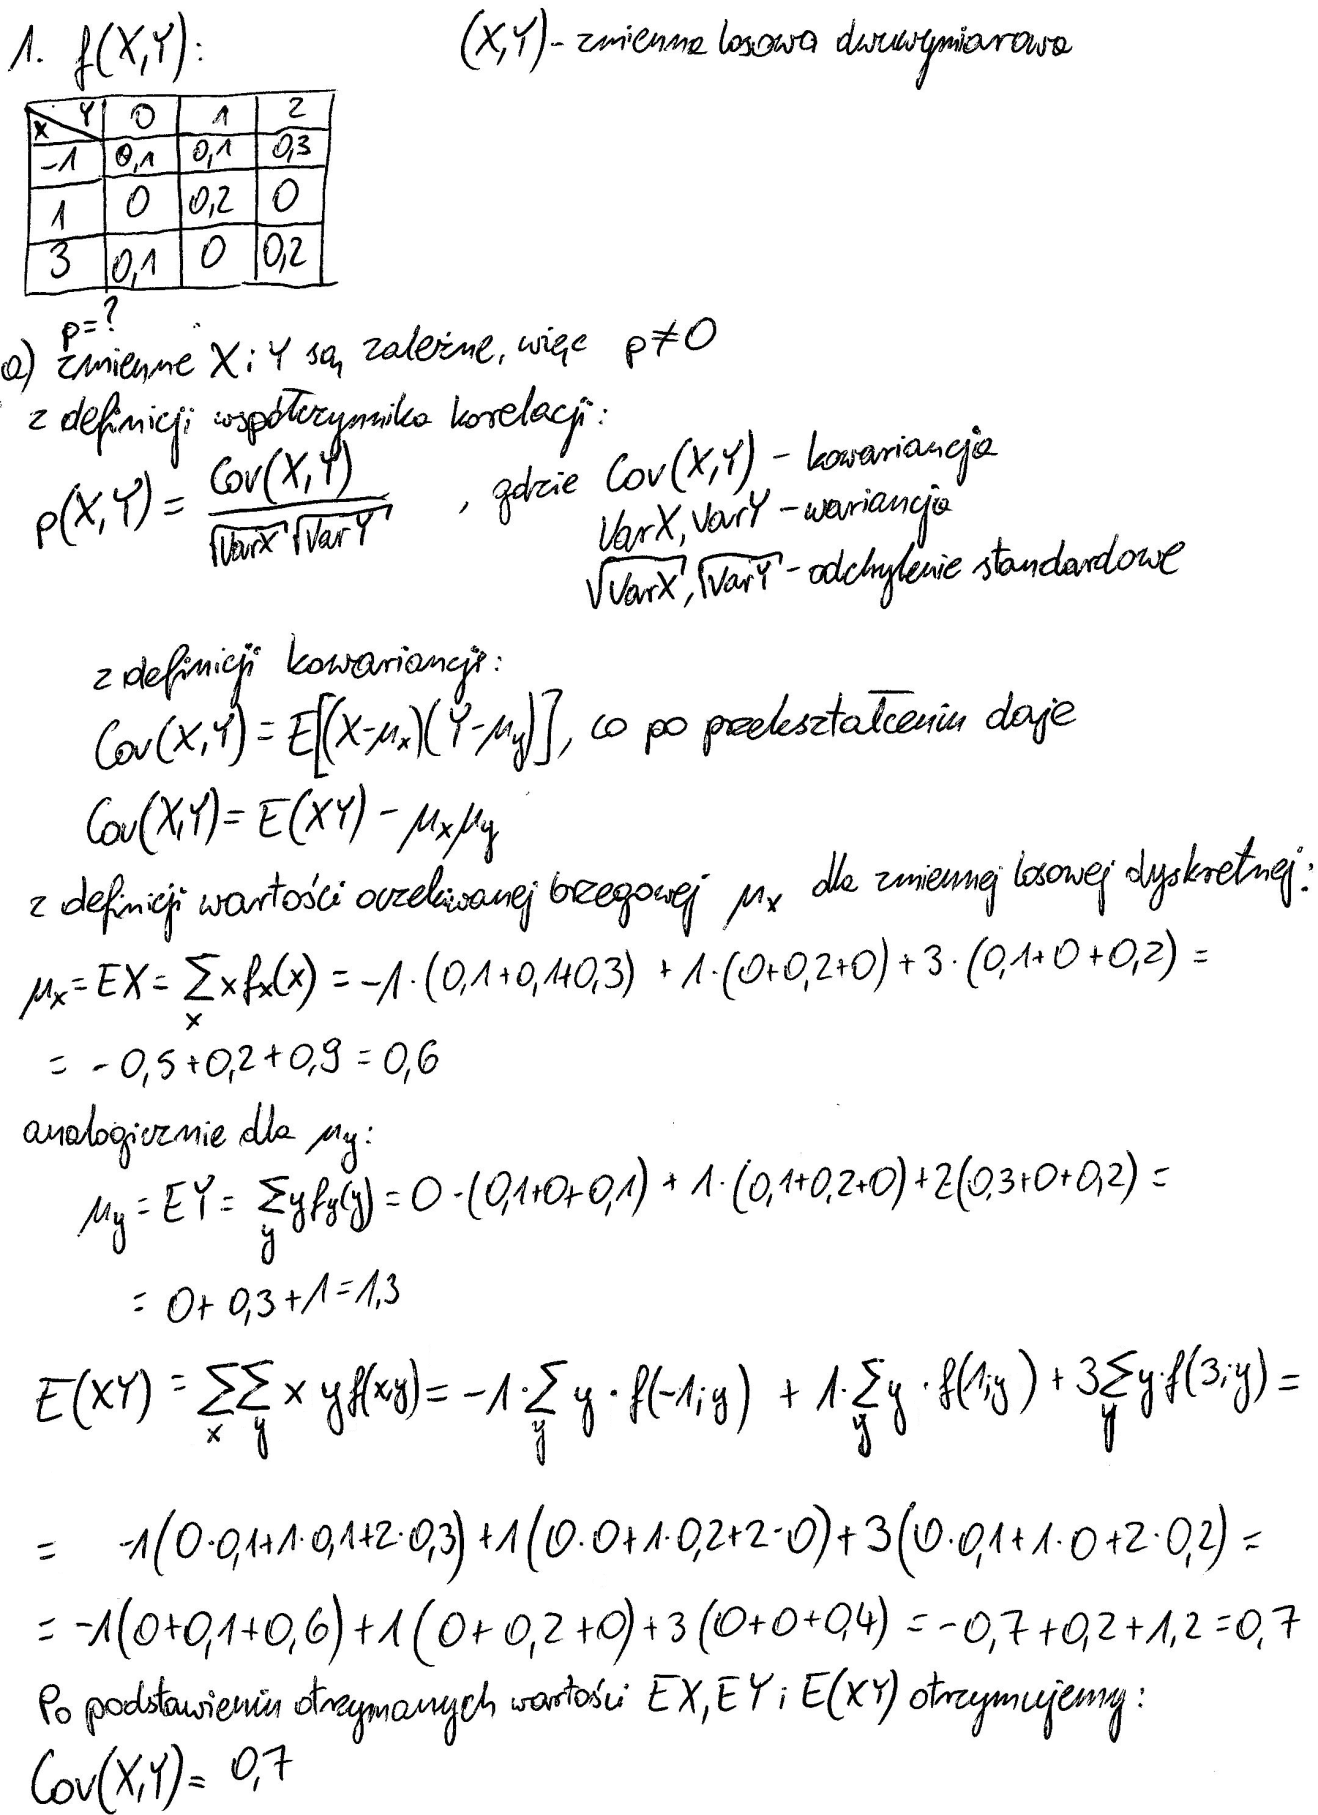 1. f(X,Y): (X,Y) - zmienna losowa dwuwymiarowa
X Y 0 1 2
-1 0,1 0,1 0,3
1 0 0,2 0
3 0,1 0 0,2
p=?
a) zmienne X i Y są zależne, więc p≠0
z definicji współczynnika korelacji:
p(X,Y) = Cov(X,Y) / √VarX √VarY , gdzie Cov(X,Y) - kowariancja
VarX, VarY - wariancja
√VarX, √VarY - odchylenie standardowe
z definicji kowariancji:
Cov(X,Y) = E[(X-μx)(Y-μy)], co po przekształceniu daje
Cov(X,Y) = E(XY) - μxμy
z definicji wartości oczekiwanej brzegowej μx dla zmiennej losowej dyskretnej:
μx = EX = Σx x fx(x) = -1·(0,1+0,1+0,3) + 1·(0+0,2+0) + 3·(0,1+0+0,2) =
= -0,5+0,2+0,9 = 0,6
analogicznie dla μy:
μy = EY = Σy y fy(y) = 0·(0,1+0+0,1) + 1·(0,1+0,2+0) + 2(0,3+0+0,2) =
= 0+0,3+1 = 1,3
E(XY) = Σx Σy x y f(x,y) = -1·Σy y·f(-1;y) + 1·Σy y·f(1;y) + 3Σy y·f(3;y) =
= -1(0·0,1+1·0,1+2·0,3) + 1(0·0+1·0,2+2·0) + 3(0·0,1+1·0+2·0,2) =
= -1(0+0,1+0,6) + 1(0+0,2+0) + 3(0+0+0,4) = -0,7+0,2+1,2 = 0,7
Po podstawieniu otrzymanych wartości EX, EY i E(XY) otrzymujemy:
Cov(X,Y) = 0,7